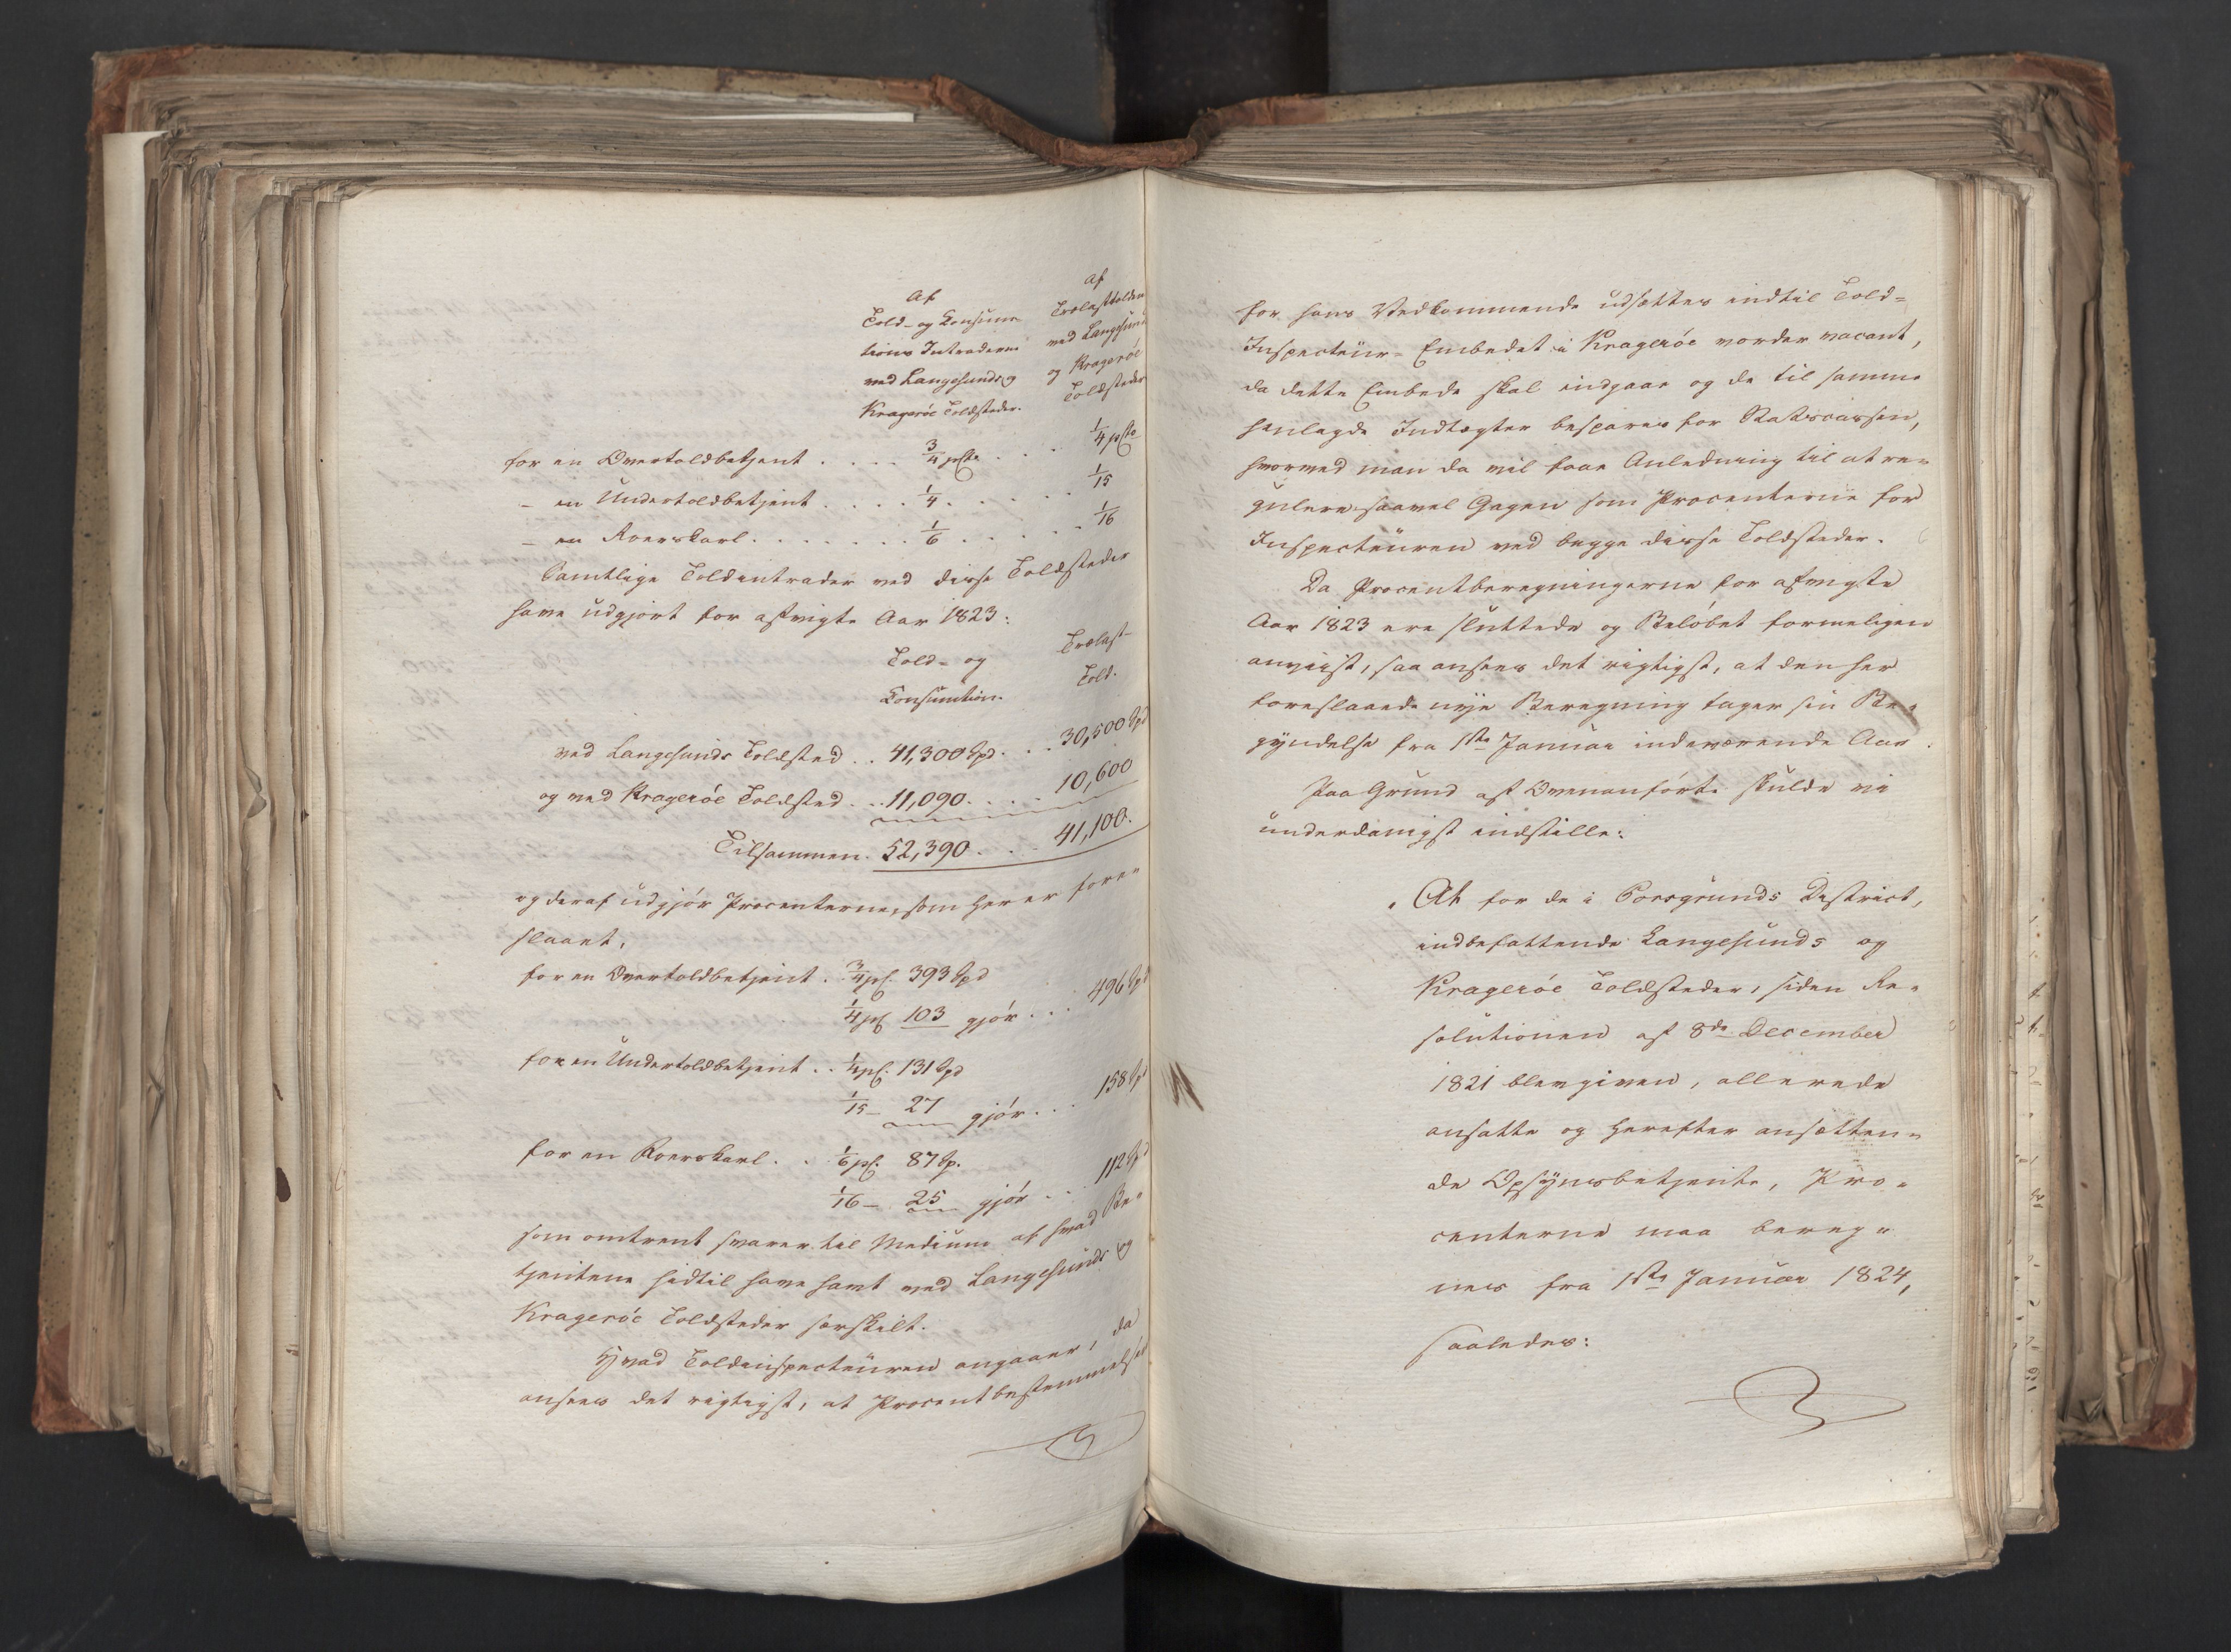 Af
Told- og Consum-
tions Intraderne
ved Langesunds og
Kragerøe Toldsteder.
Af
Trælasttolden
ved Langesund
og Kragerøe
Toldsteder
for en Overtoldbetjent . . . . 3/4 pCto . . . 1/4 pCto
- en Undertoldbetjent . . . . 1/4 . . . . . 1/15
- en Roerskarl . . . . . . . 1/6 . . . . . 1/16
Samtlige Toldintrader ved disse Toldsteder
have udgjort for afvigte Aar 1823:
Told- og
Consumtion.
Trælast-
Told.
ved Langesunds Toldsted . . 41,300 Spd. . . 30,500 Spd
og ved Kragerøe Toldsted . . 11,090. . . . 10,600
Tilsammen. 52,390 . . . 41,100.
og deraf udgjør Procenterne, som her er fore-
slaaet,
for en Overtoldbetjent . 3/4 pC. 393 Spd
1/4 pC 103 gjør . . . 496 Spd
for en Undertoldbetjent . . 1/4 pC. 131 Spd
1/15 - 27 gjør . . . 158 Spd
for en Roerskarl . . 1/6 pC. 87 Sp.
1/16 - 25 gjør . . 112 Spd
som omtrent svarer til Medium af hvad Be-
tjentene hidtil have havt ved Langesunds og
Kragerøe Toldsteder særskilt.
Hvad Toldinspecteuren angaaer, da
ansees det rigtigst, at Procentbestemmelsen
for hans Vedkommende udsættes indtil Told-
Inspecteur-Embedet i Kragerøe vorder vacant,
da dette Embede skal indgaae og de til samme
henlagde Indtægter bespares for Statscassen,
hvorved man da vil faae Anledning til at re-
gulere saavel Gagen som Procenterne for
Inspecteuren ved begge disse Toldsteder.
Da Procentberegningerne for afvigte
Aar 1823 ere sluttede og Beløbet formeligen
anviist, saa ansees det rigtigst, at den her
foreslaaede nye Beregning tager sin Be-
gyndelse fra 1ste Januar indeværende Aar.
Paa Grund af Ovenanførte skulde vi
underdanigst indstille:
"At for de i Porsgrunds District,
indbefattende Langesunds og
Kragerøe Toldsteder, siden Re-
solutionen af 8de December
1821 blev given, allerede
ansatte og herefter ansætten-
de Opsynsbetjente, Pro-
centerne maa bereg-
nes fra 1ste Januar 1824,
saaledes: